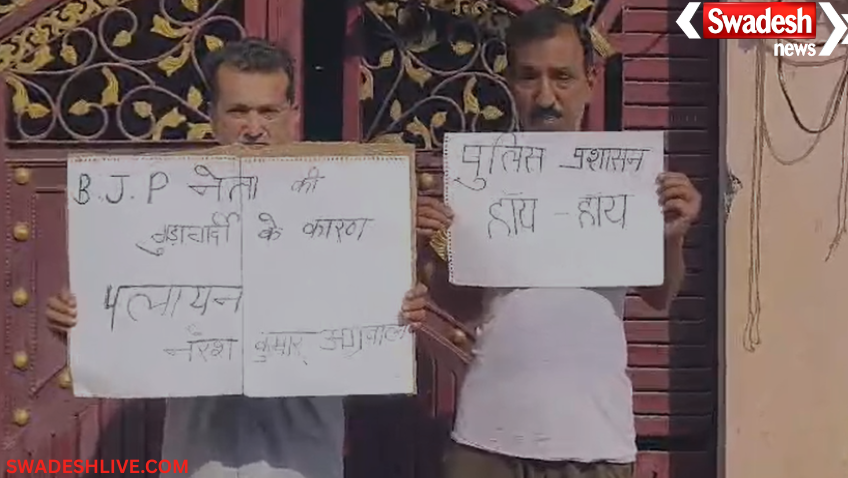 Swadesh
news
B.J.P नेता की
गुडागर्दी के कारण
पलायन
नरेश कुमार अग्रवाल
पुलिस प्रशासन
हॉय - हॉय
SWADESHLIVE.COM